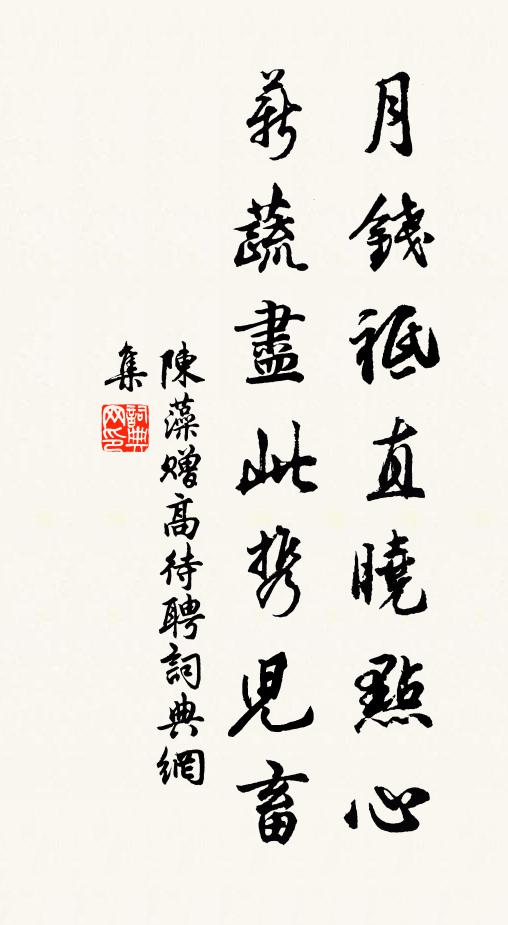 月錢祗直曉點心
薪蔬盡此携兒畜
陳藻贈高待聘詞典網
集
詞典网印